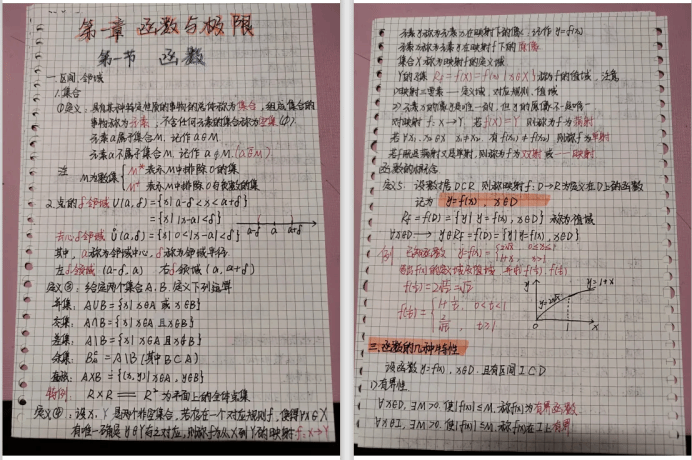 第一章 函数与极限
第一节 函数
一.区间.邻域
1.集合
①定义:具有某种特定性质的事物的总体称为集合,组成集合的
事物称为元素,不含任何元素的集合称为空集(∅).
元素a属于集合M,记作a∈M.
元素a不属于集合M,记作a∉M.
注 M为数集 M* 表示M中排除0的集
M⁺ 表示M中排除0与负数的集
2.点的δ邻域 U(a,δ)={x|a-δ<x<a+δ}
={x||x-a|<δ}
去心δ邻域 Ů(a,δ)={x|0<|x-a|<δ} a-δ a a+δ
其中,a称为邻域中心,δ称为邻域半径
左δ邻域(a-δ,a) 右δ邻域(a,a+δ)
定义③:给定两个集合A,B,定义下列运算
并集: A∪B={x|x∈A 或 x∈B}
交集: A∩B={x|x∈A 且 x∈B}
差集: A\B={x|x∈A 且 x∉B}
余集: =A\B(其中B⊂A)
A×B={(x,y)|x∈A,y∈B}
特例: R×R R² 为平面上的全体点集
定义④:设X,Y是两个非空集合,若存在一个对应规则f,使得∀x∈X
有唯一确定y∈Y与之对应,则称f为从X到Y的映射f:X→Y
元素y称为元素x在映射f下的像,记作y=f(x)
元素x称为元素y在映射f下的原像
集合X称为映射f的定义域
Y的子集 =f(X)={f(x)|x∈X}称为f的值域,注意
1)映射三要素——定义域,对应规则,值域
2)元素x的像y是唯一的,但y的原像不一定唯一
对映射f:X→Y,若f(X)=Y,则称f为满射
若∀x₁,x₂∈X x₁≠x₂,有f(x₁)≠f(x₂)则称f为单射
若f既是满射又是单射,则称f为双射或一一映射
函数的概念
定义5:设数集D⊂R,则称映射f:D→R为定义在D上的函数
记为 y=f(x),x∈D
=f(D)={y|y=f(x),x∈D}称为值域
例 已知函数 y=f(x)= 2√x, 0≤x≤1
1+x, x>1
y y=2√x y=1+x
0 1 x
三.函数的几种特性
设函数y=f(x),x∈D,且有区间I⊂D
1)有界性
∀x∈D,∃M>0,使|f(x)|≤M,称f(x)为有界函数.
∀x∈I,∃M>0,使|f(x)|≤M,称f(x)在I上有界